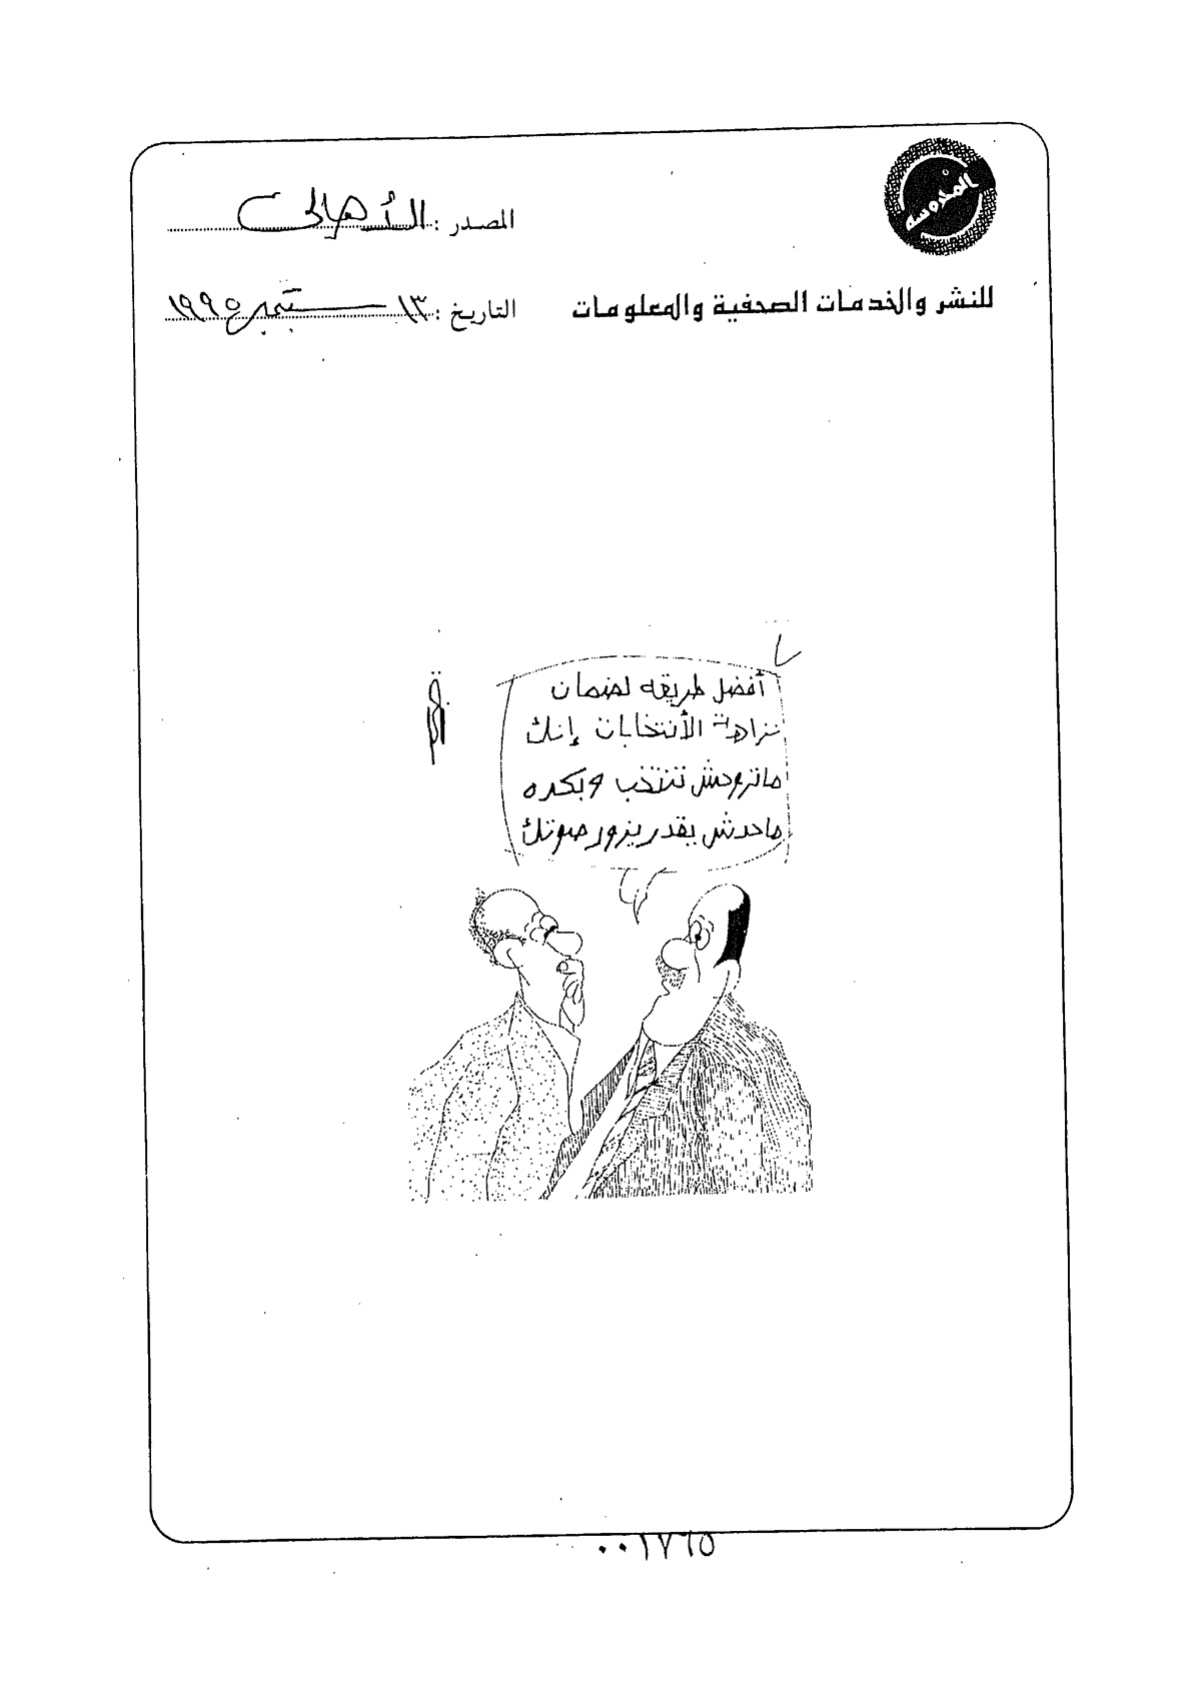 المحروسة
المصدر : الأهالى
للنشر والخدمات الصحفية والمعلومات
التاريخ : ١٣ سبتمبر ١٩٩٥
أفضل طريقه لضمان
نزاهة الأنتخابات إنك
ماتروحش تنتخب وبكده
ماحدش يقدر يزور صوتك
٠٠١٧٦٥